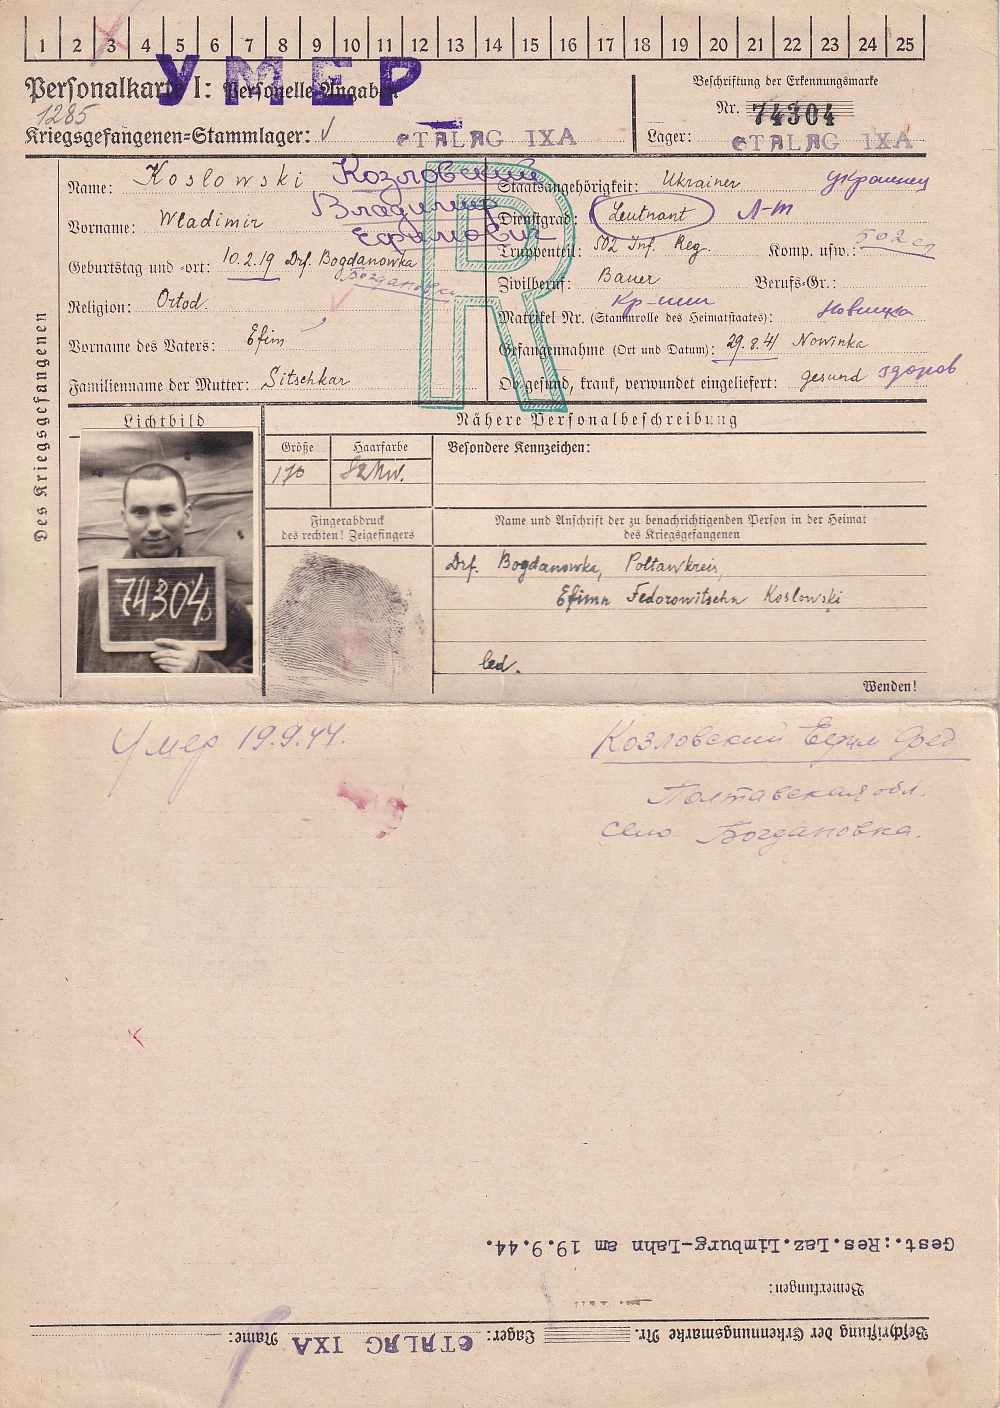 1 2 3 4 5 6 7 8 9 10 11 12 13 14 15 16 17 18 19 20 21 22 23 24 25
УМЕР
Personalkarte I: Personelle Angaben
1285
Kriegsgefangenen-Stammlager: STALAG IXA
Beschriftung der Erkennungsmarke
Nr. 74304
Lager: STALAG IXA
Des Kriegsgefangenen
Name: Koslowski Козловский
Vorname: Wladimir Владимир
Ефимович
Geburtstag und -ort: 10.2.19 Drf. Bogdanowka
Богдановка
Religion: Ortod.
Vorname des Vaters: Efim
Familienname der Mutter: Sitschkar
R
Staatsangehörigkeit: Ukrainer Украинец
Dienstgrad: Leutnant Л-т
Truppenteil: 502 Inf. Reg. Komp. usw.: 502 сп
Zivilberuf: Bauer Berufs-Gr.:
Кр-нин
Matrikel Nr. (Stammrolle des Heimatstaates): Новинка
Gefangennahme (Ort und Datum): 29.8.41 Nowinka
Ob gesund, krank, verwundet eingeliefert: gesund здоров
Lichtbild
74304
Nähere Personalbeschreibung
Größe Haarfarbe Besondere Kennzeichen:
170
Fingerabdruck
des rechten! Zeigefingers
Name und Anschrift der zu benachrichtigenden Person in der Heimat
des Kriegsgefangenen
Drf. Bogdanowka, Poltawkreis,
Efimn Fedorowitschn Koslowski
led.
Wenden!
Умер 19.9.44.
Козловский Ефим Фед
Полтавская обл.
село Богдановка.
Gest.:Res.Laz.Limburg-Lahn am 19.9.44.
Bemerkungen:
Beschriftung der Erkennungsmarke Nr. Lager: STALAG IXA Name: